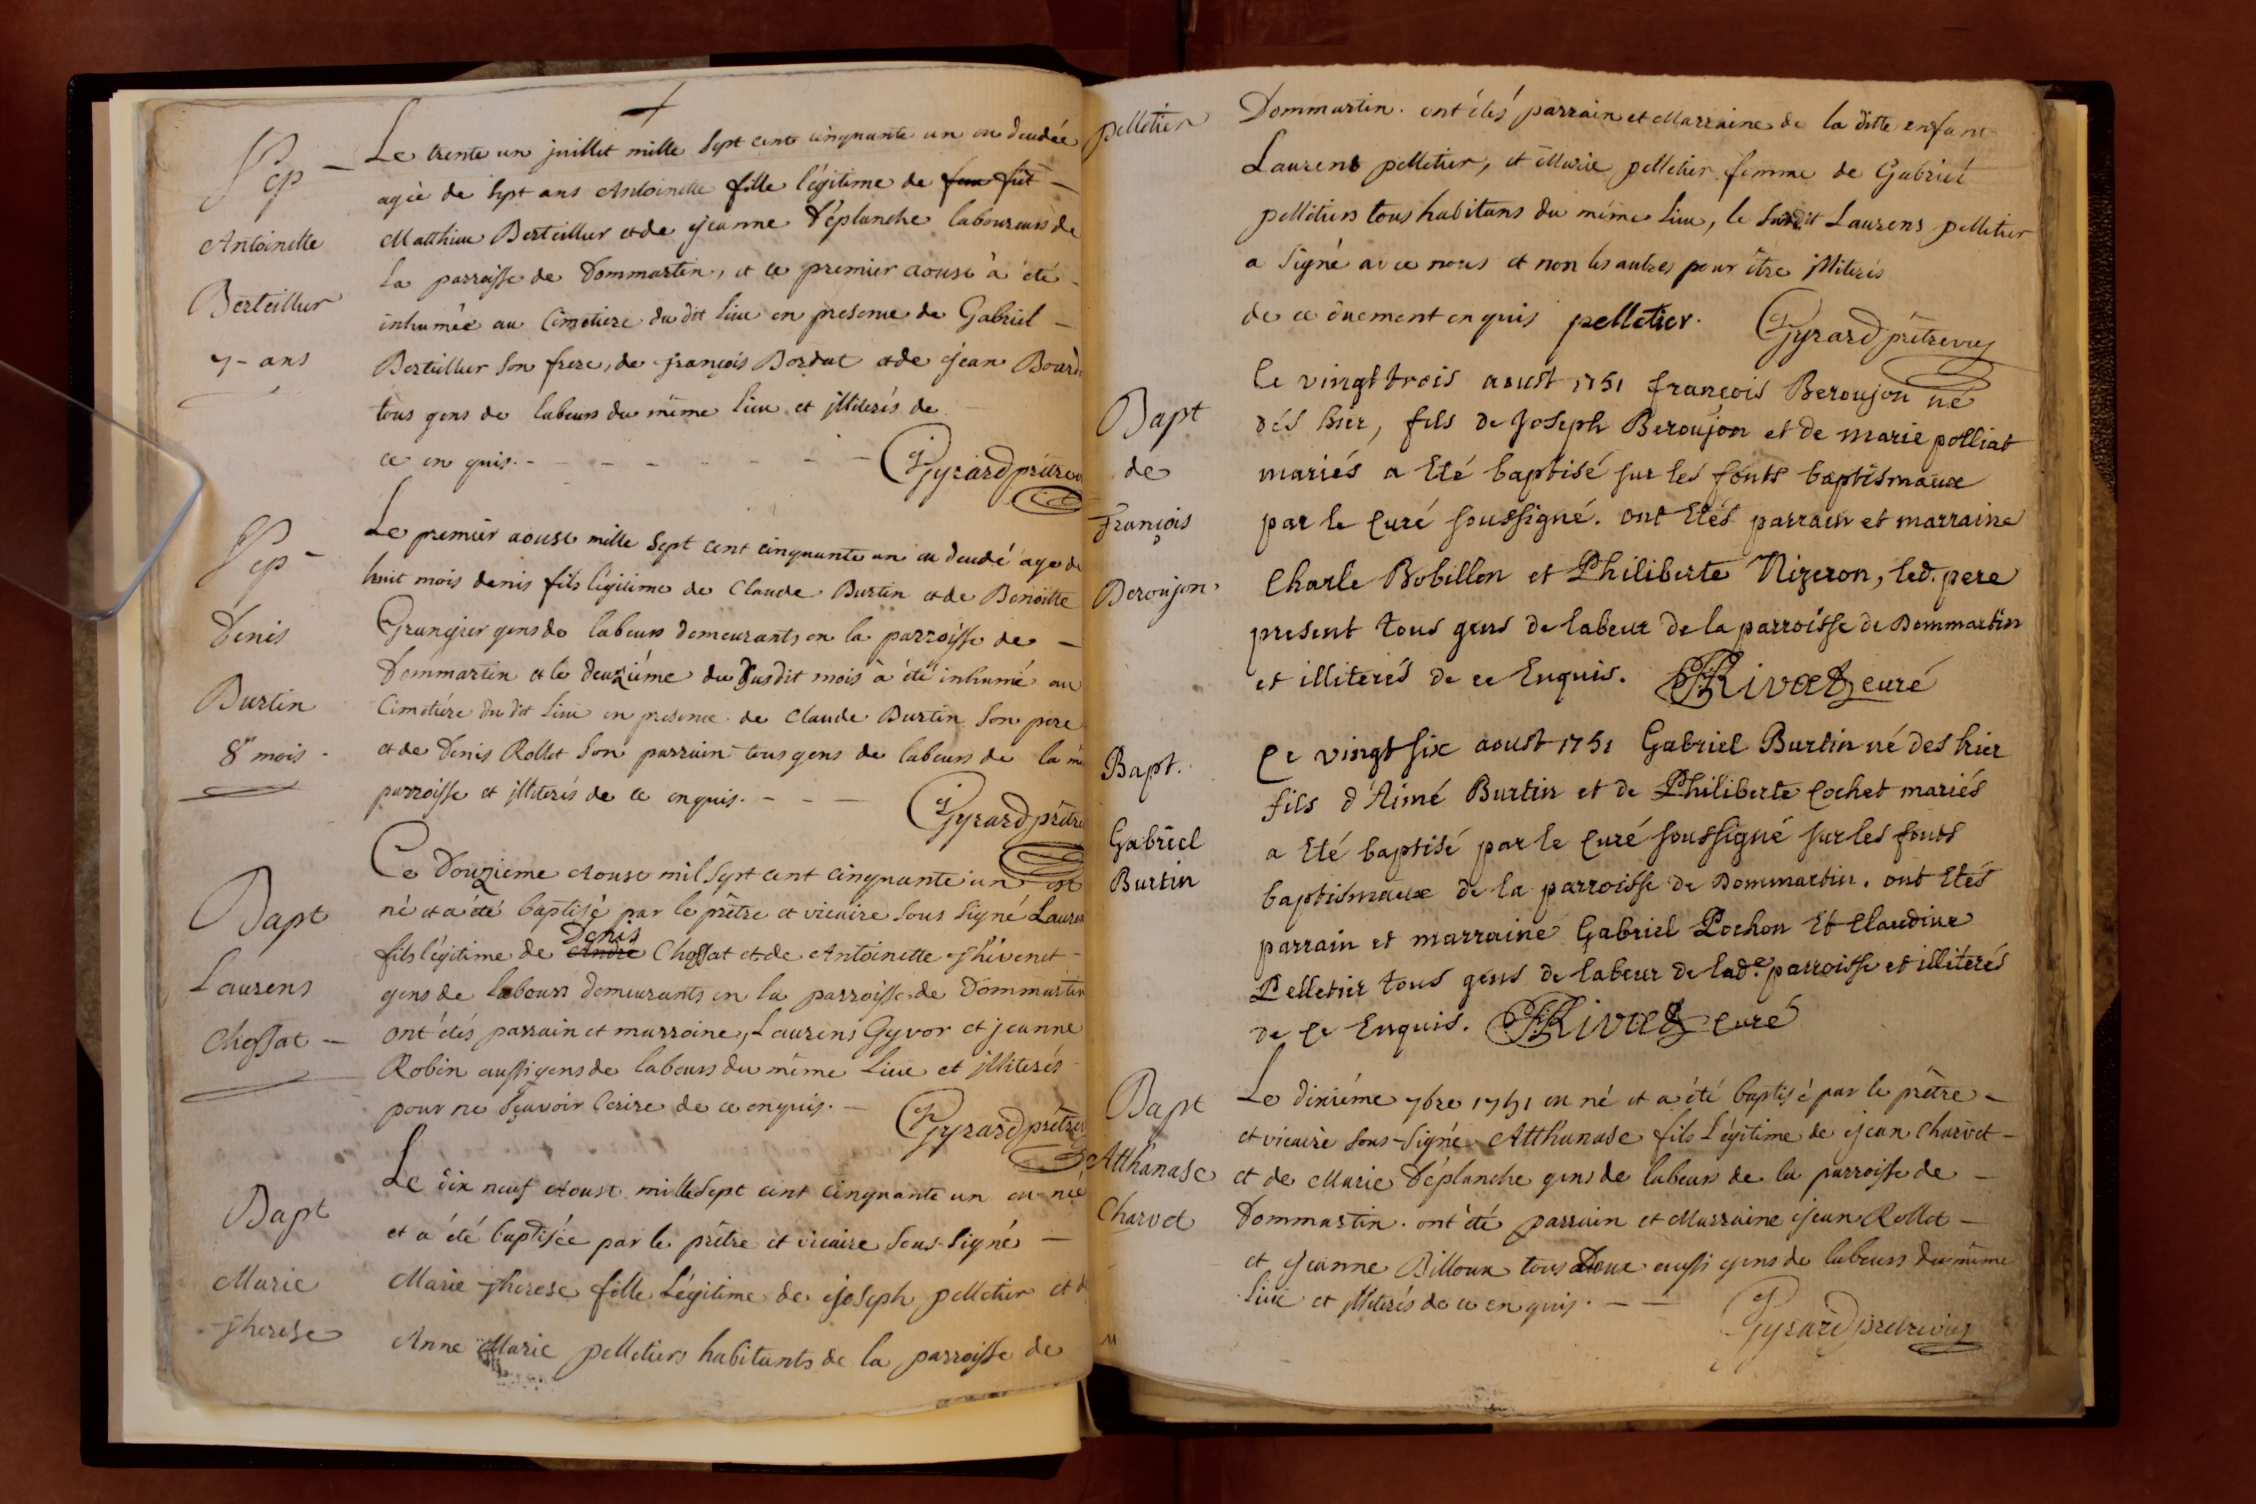 Sep -
Antoinette
Berteillier
7 - ans
Le trente un juillet mille sept cent cinquante un en deudée
agèe de sept ans Antoinette fille légitime de feu fut -
Matthieu Berteillier et de jeanne Déplanche laboureurs de
la parroisse de Dommartin, et ce premier aoust à été -
inhumée au Cimetiere du dit lieu en presence de Gabriel -
Berteillier son frere, de françois Bordat et de jean Bourd
tous gens de labeurs du même lieu et illiterés de
ce en quis. - - - - - - Gyrard prêtre
Sep -
Denis
Burtin
8 mois -
Le premier aoust mille sept cent cinquante un en deudé agé de
huit mois denis fils légitime de Claude Burtin et de Benoitte
Grangier gens de labeurs demeurants en la parroisse de -
Dommartin et le deuziéme du susdit mois à été inhumé au
Cimetiére du dit lieu en presence de Claude Burtin son pere
et de Denis Rollet son parrain tous gens de labeurs de la m
parroisse et illiterés de ce enquis. - - - Gyrard prêtre
Bapt
Laurens
Chossat -
Ce Douzieme Aoust mil sept cent cinquante un est
né et a été baptisé par le prêtre et vicaire sous signé Lauren
Denis
fils légitime de André Chossat et de Antoinette Thévenet -
gens de labeurs demeurants en la parroisse de Dommartin
ont étés parrain et marraine, Laurens Gyvor et jeanne
Robin aussi gens de labeurs du même lieu et illiterés -
pour ne sçavoir ecrire de ce enquis. - Gyrard prêtre
Bapt
Marie
Therese
Le dix neuf Aoust mille sept cent cinquante un en née
et a été baptisée par le prêtre et vicaire sous-signé -
Marie Therese fille Légitime de joseph pelletier et d
Anne Marie pelletiers habitants de la parroisse de
pelletier
Dommartin. ont étés parrain et Marraine de la ditte enfant
Laurens pelletier, et Marie pelletier femme de Gabriel
pelletiers tous habitans du même lieu, le susdit Laurens pelletier
a signé avec nous et non les autres pour être illiterés
de ce duement enquis pelletier. Gyrard prêtre vic
Bapt
de
François
Beroujon.
le vingt trois aoust 1751 françois Beroujon né
dés hier, fils de Joseph Beroujon et de marie polliat
mariés a Eté baptisé sur les fonts baptismaux
par le Curé soussigné. ont Etés parrain et marraine
Charle Bobillon et Philiberte Nizeron, led. pere
present tous gens de labeur de la parroisse de Dommartin
et illiterés de ce Enquis. Rivat curé
Bapt.
Gabriel
Burtin
Ce vingt six aoust 1751 Gabriel Burtin né des hier
fils d'Aimé Burtin et de Philiberte Cochet mariés
a Eté baptisé par le Curé soussigné sur les fonts
baptismaux de la parroisse de Dommartin. ont Etés
parrain et marraine Gabriel Pochon Et Claudine
Pelletier tous gens de labeur de lad.e parroisse et illiterés
de Ce Enquis. Rivat Curé
Bapt
Atthanase
Charvet
Le dixiéme 7bre 1751 en né et a été baptisé par le prêtre -
et vicaire sous-signé Atthanase fils Légitime de jean Charvet -
et de Marie Déplanche gens de labeurs de la parroisse de -
Dommartin. ont été parrain et Marraine jean Rollet -
et jeanne Billoux tous deux aussi gens de labeurs du même
lieu et illiterés de ce enquis. - - Gyrard prêtre vic